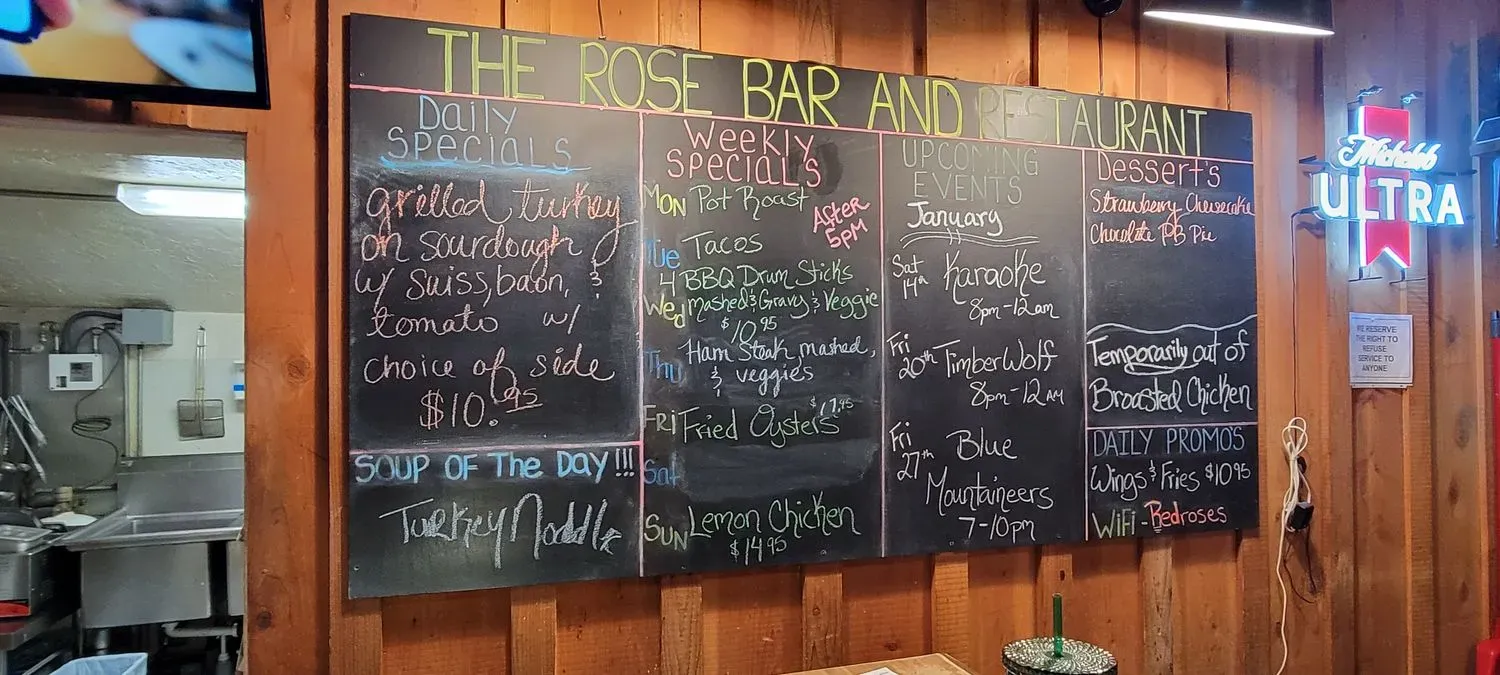 THE ROSE BAR AND RESTAURANT
Daily
SPECIALS
grilled turkey
on sourdough
w/ Swiss, bacon, &
tomato w/
choice of side
$10.95
SOUP OF The DAY!!!
Turkey Noddle
Weekly
SPECIALS
After
5pm
MON Pot Roast
Tue Tacos
4 BBQ Drum Sticks
Wed mashed & Gravy & Veggie
$10.95
Ham Steak, mashed,
Thu & veggies
$17.95
FRI Fried Oysters
Sat
SUN Lemon Chicken
$14.95
UPCOMING
EVENTS
January
Sat
14th Karaoke
8pm-12am
Fri
20th TimberWolf
8pm-12AM
Fri
27th Blue
Mountaineers
7-10pm
Dessert's
Strawberry Cheesecake
Chocolate PB Pie
Temporarily out of
Broasted Chicken
DAILY PROMO'S
Wings & Fries $10.95
WiFi - Redroses
Michelob
ULTRA
WE RESERVE
THE RIGHT TO
REFUSE
SERVICE TO
ANYONE